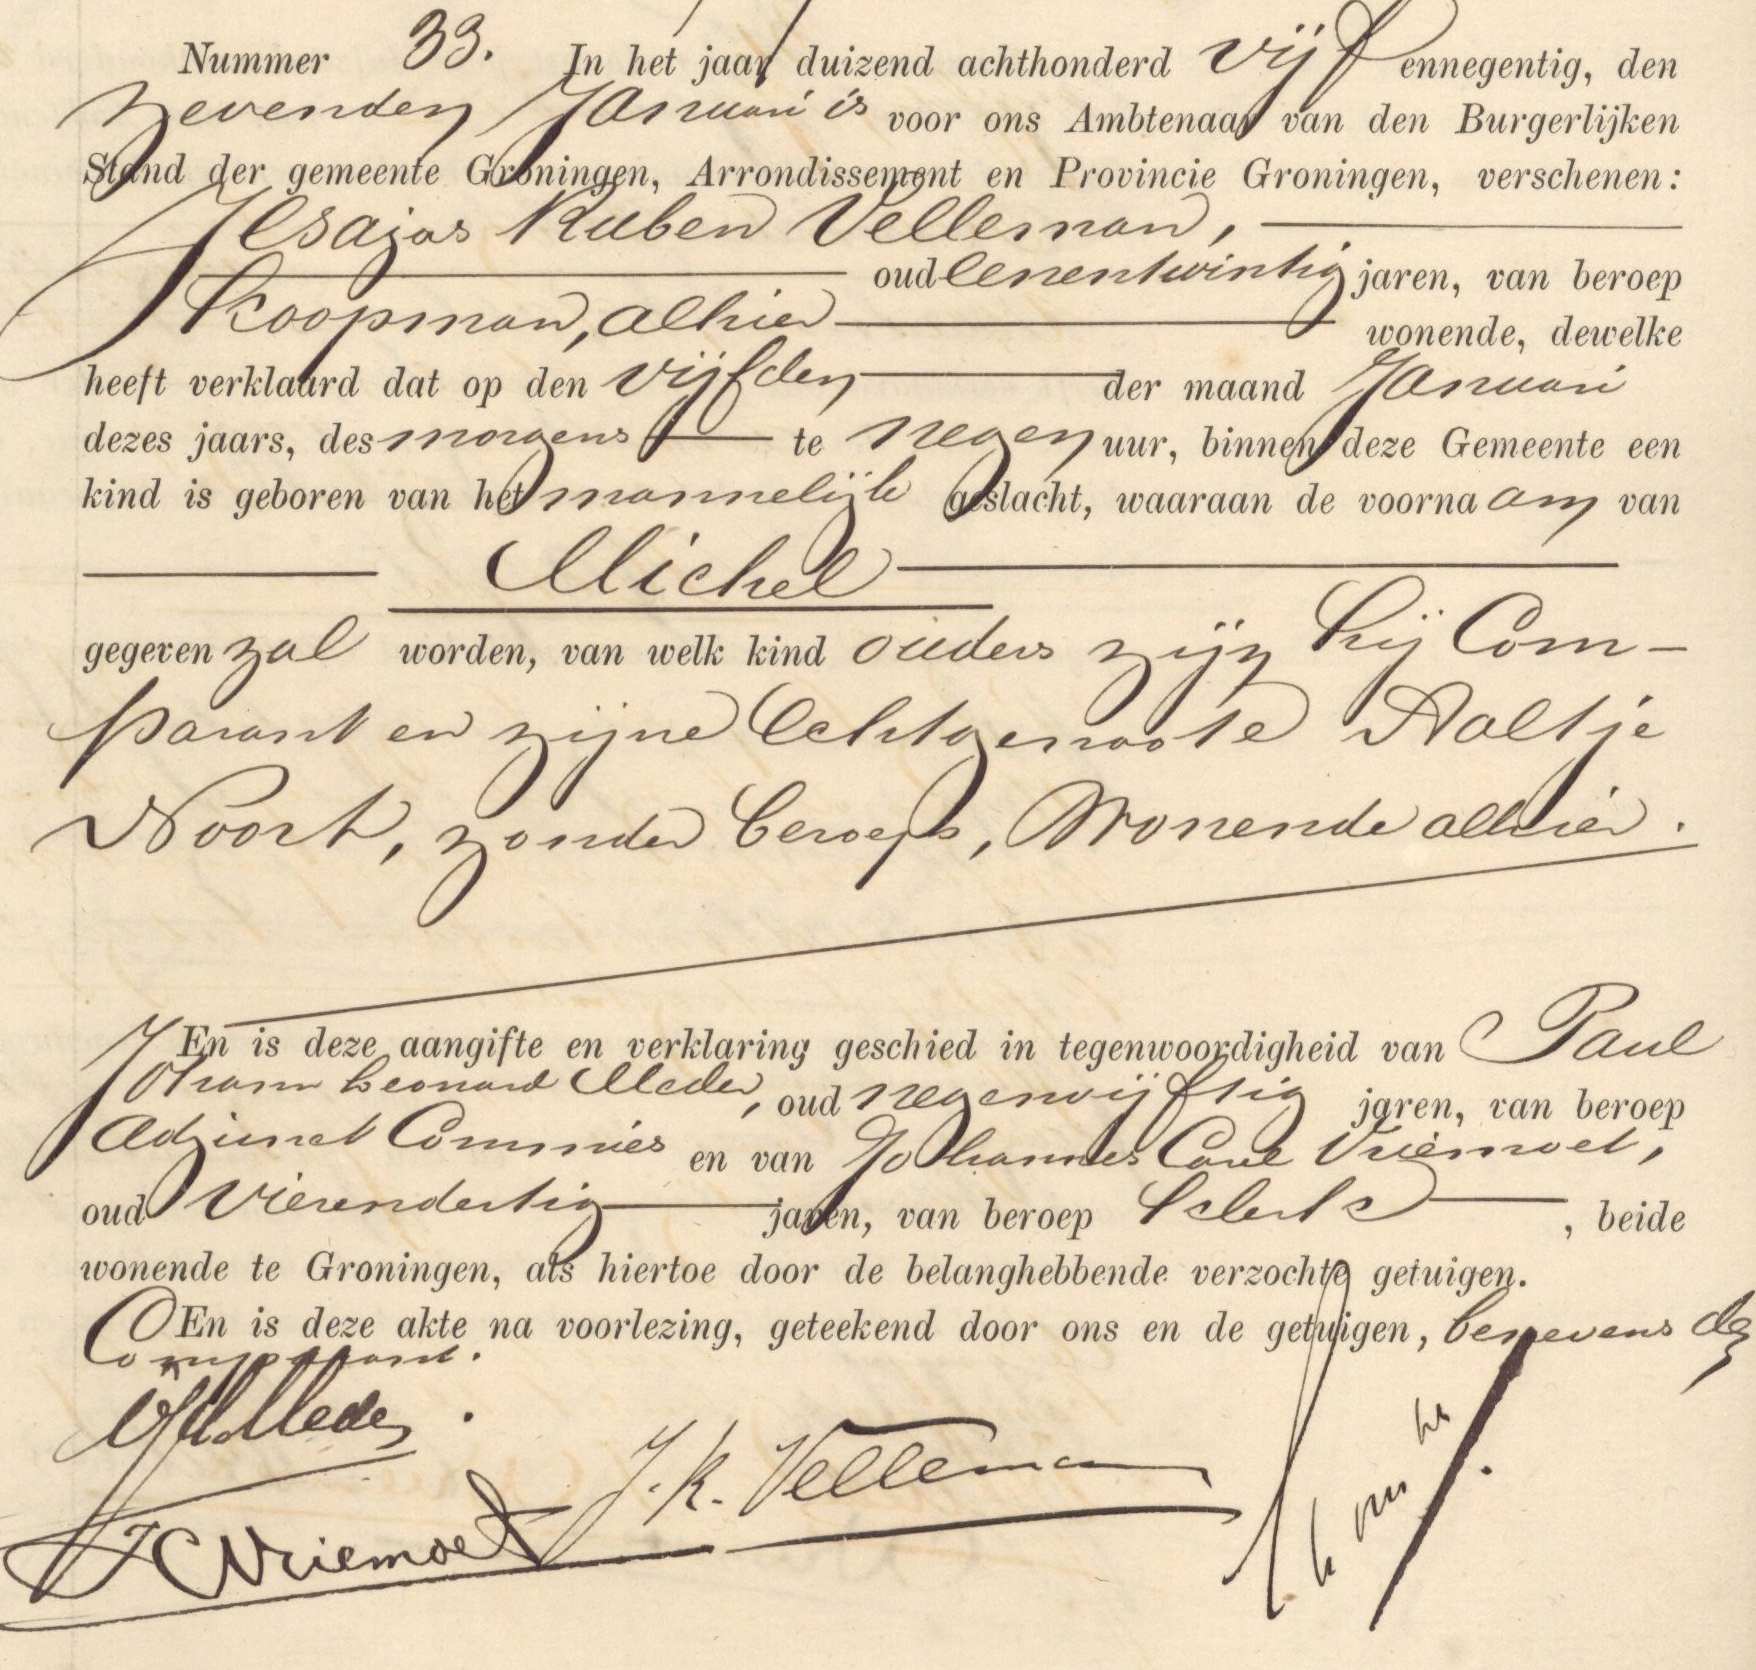 Nummer 33. In het jaar duizend achthonderd vijf ennegentig, den
zevenden Januari is voor ons Ambtenaar van den Burgerlijken
Stand der gemeente Groningen, Arrondissement en Provincie Groningen, verschenen:
Jesajas Ruben Velleman,
oud eenentwintig jaren, van beroep
Koopman, alhier wonende, dewelke
heeft verklaard dat op den vijfden der maand Januari
dezes jaars, des morgens te negen uur, binnen deze Gemeente een
kind is geboren van het mannelijk geslacht, waaraan de voornaam van
Michel
gegeven zal worden, van welk kind ouders zijn hij Com-
parant en zijne Echtgenoote Aaltje
Noort, zonder beroep, Wonende alhier.
En is deze aangifte en verklaring geschied in tegenwoordigheid van Paul
Johann Leonard Meder, oud negenvijftig jaren, van beroep
Adjunct Commies en van Johannes Carel Vriemoet,
oud Vierendertig jaren, van beroep Klerk, beide
wonende te Groningen, als hiertoe door de belanghebbende verzochte getuigen.
En is deze akte na voorlezing, geteekend door ons en de getuigen, benevens den
Comparant.
Meder
J. R. Velleman
JC Vriemoet